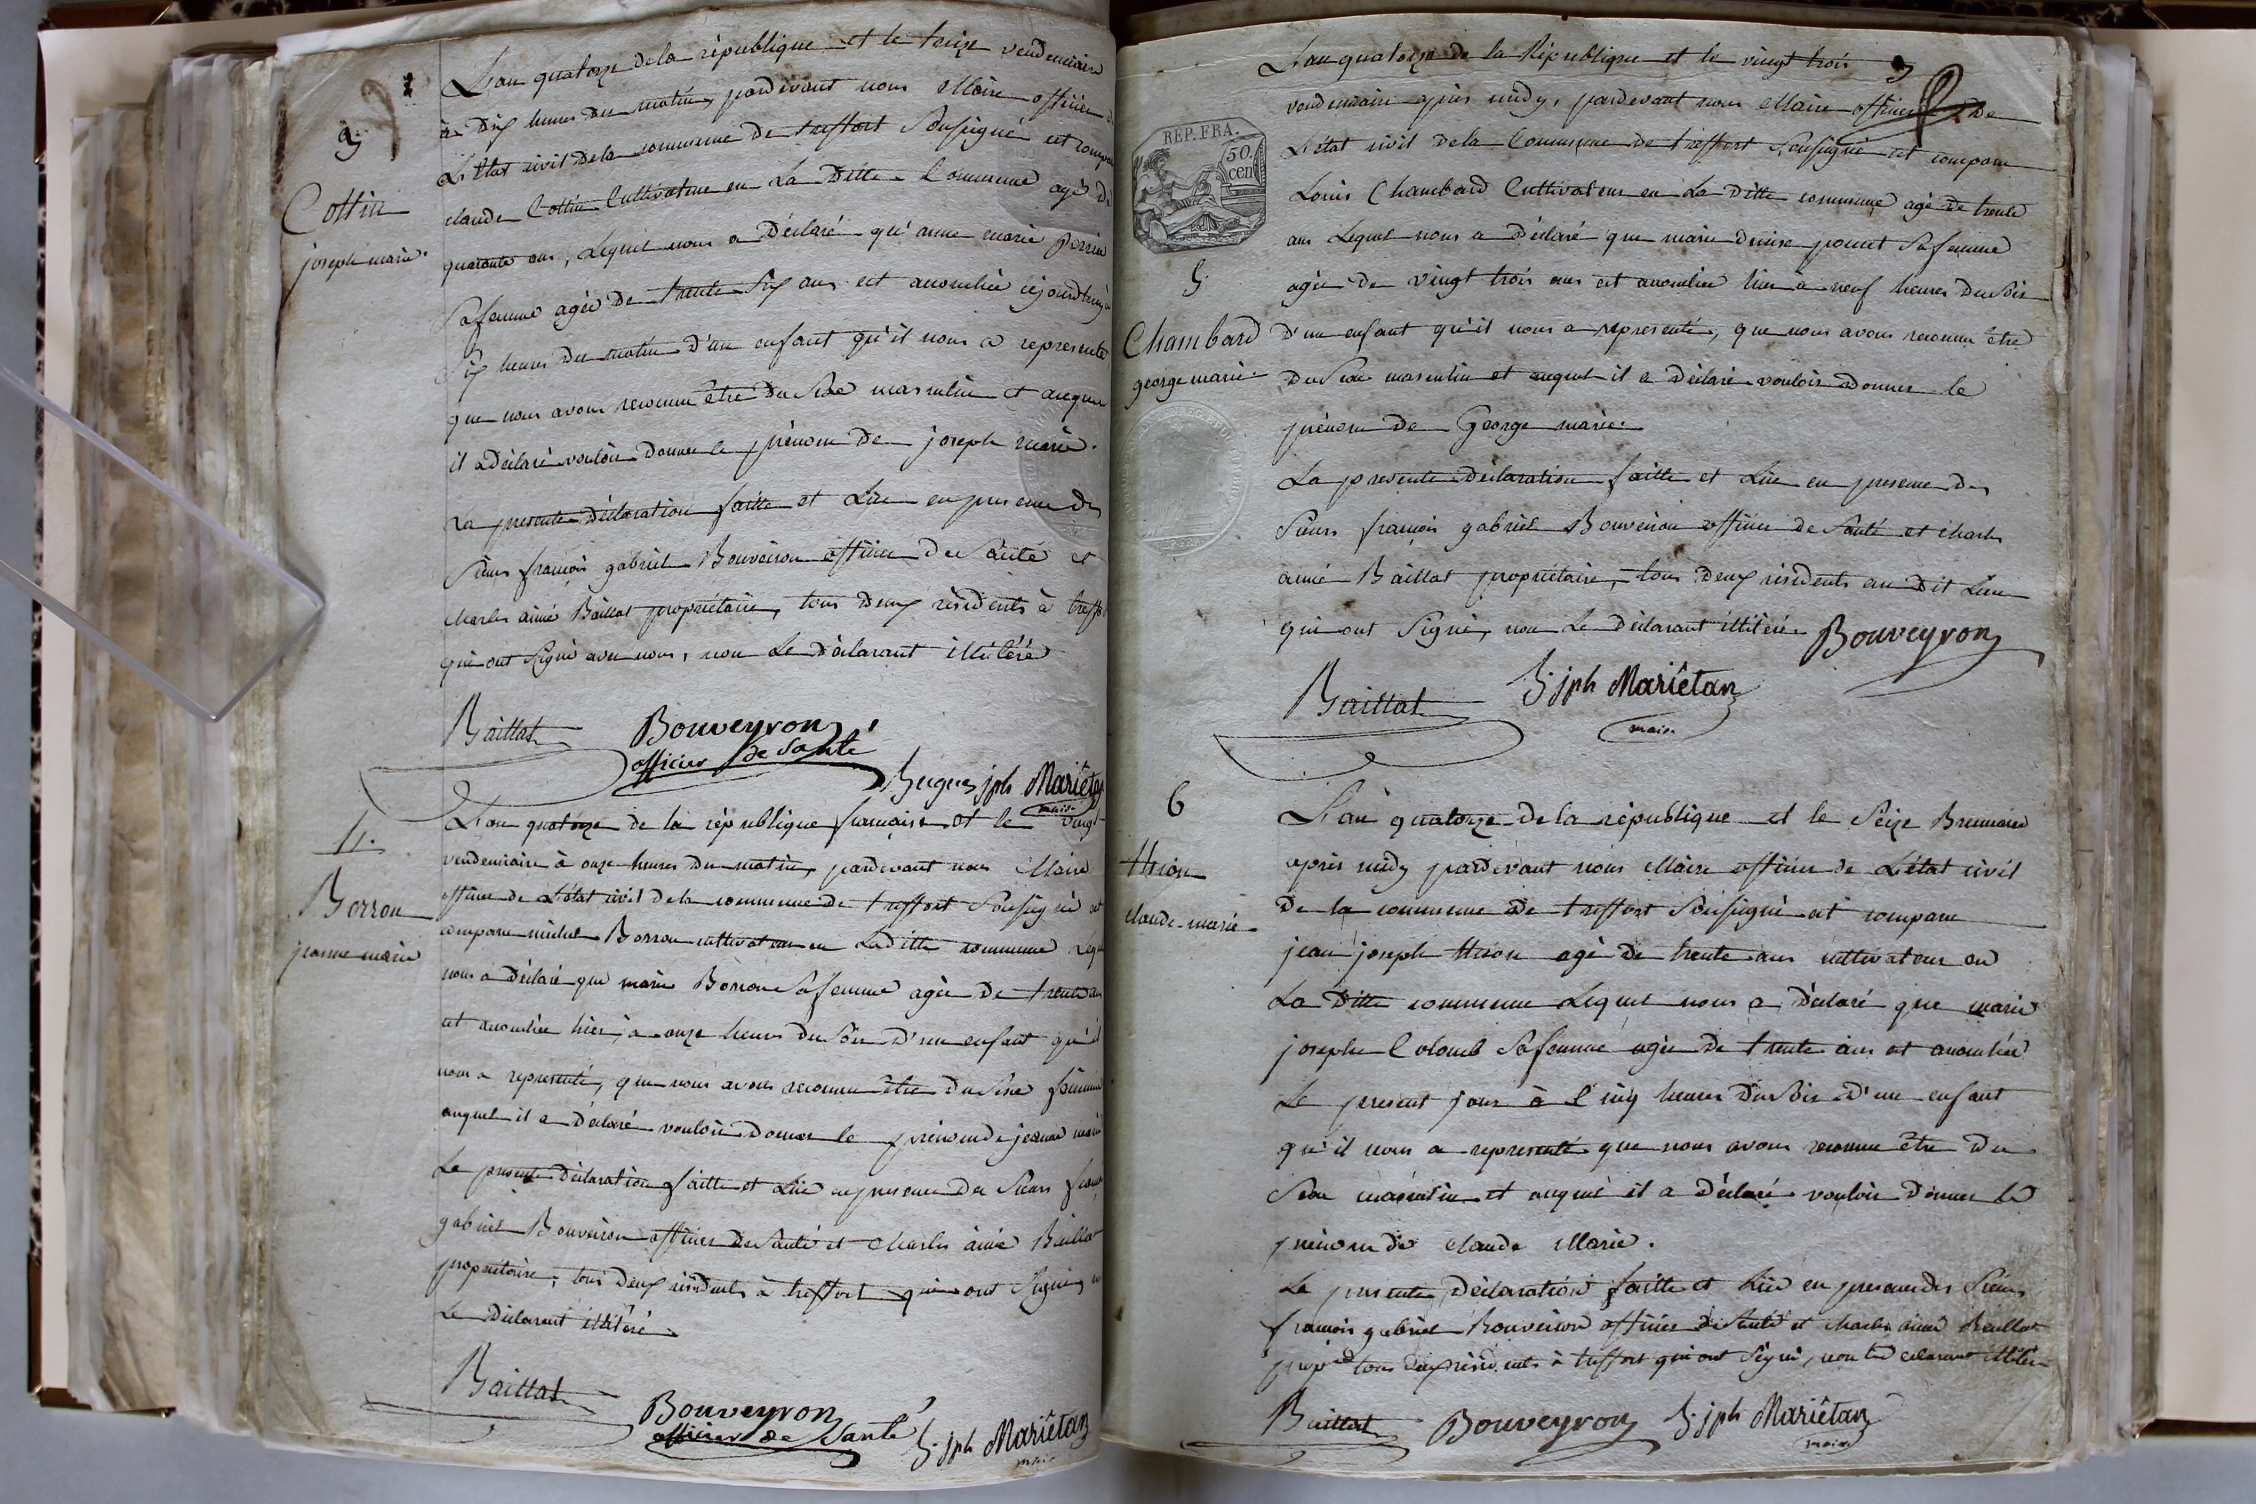 3
Cottin
joseph marie.
L'an quatorze de la république et le treize vendemiaire
à Dix heures du matin, pardevant nous Maire officier
L'Etat civil de la commune de treffort Soussigné est
claude Cottin Cultivateur en La Ditte Commune agé de
quarante ans, Lequel nous a Déclaré qu'anne marie Perrin
Sa femme agée De trente Six ans est accouchée
Six heures du matin d'un enfant qu'il nous a representé
que nous avons reconnu être Du Sexe masculin et auquel
il a Déclaré vouloir Donner le prénom De joseph marie.
La presente Déclaration faitte et Lüe en presence des
Sieurs françois gabriel Bouveiron officier de Santé et
charles aimé Baillat propriétaire, tous Deux résidents à
qui ont Signé avec nous, non Le Déclarant illitéré
Baillat Bouveyron
officier de Santé
jph Mariêtan
maire
4.
Borron
jeanne marie
L'an quatorze de la république française et le vingt
vendemiaire à onze heures du matin, pardevant nous Maire
officier de L'état civil de la commune de treffort Soussigné est
comparu michel Borron cultivateur en Laditte commune
nous a Déclaré que marie Borron Sa femme agée De trente ans
est accouchée hier à onze heures du Soir D'un enfant qu'il
nous a representé, que nous avons reconnu être du Sexe
auquel il a Déclaré vouloir Donner le prénom de jeanne marie
La presente Déclaration faitte et Lüe en presence des Sieurs
gabriel Bouveiron officier de Santé et charles aimé Baillat
propriétaire, tous Deux résidents à treffort qui ont Signé,
Le Déclarant illitéré
Baillat
Bouveyron
officier de Santé
jph Mariêtan
maire
REP. FRA.
50
cen
5
Chambard
george marie.
L'an quatorze de la République et le vingt trois
vendemiaire après midy, pardevant nous Maire officier De
L'état civil de la Commune de treffort Soussigné est comparu
Louis Chambard Cultivateur en La Ditte commune agé De trente
ans Lequel nous a Déclaré que marie Denise Sa femme
agée De vingt trois ans est accouchée hier à neuf heures Du Soir
D'un enfant qu'il nous a representé, que nous avons reconnu être
Du Sexe masculin et auquel il a Déclaré vouloir Donner le
prénom De George marie.
La presente Déclaration faitte et Lüe en presence des
Sieurs françois gabriel Bouveiron officier de Santé et charles
aimé Baillat propriétaire, tous Deux résidents au Dit Lieu
qui ont Signé, non Le Déclarant illitéré. Bouveyron
Baillat jph Mariêtan
maire
6
claude-marie
L'an quatorze de la république et le Seize Brumaire
après midy pardevant nous Maire officier de L'état civil
De la commune De treffort Soussigné est comparu
jean joseph agé De trente ans cultivateur en
La Ditte commune Lequel nous a Déclaré que marie
josephe Colomb Sa femme agée de trente ans est accouchée
Le present jour à Cinq heures Du Soir D'un enfant
qu'il nous a representé que nous avons reconnu être Du
Sexe masculin et auquel il a Déclaré vouloir Donner le
prénom de claude Marie.
La presente Déclaration faitte et Lüe en presence des Sieurs
françois gabriel Bouveiron officier de Santé et charles aimé Baillat
tous deux résidents à treffort qui ont Signé, non le déclarant
Baillat Bouveyron jph Mariêtan
maire